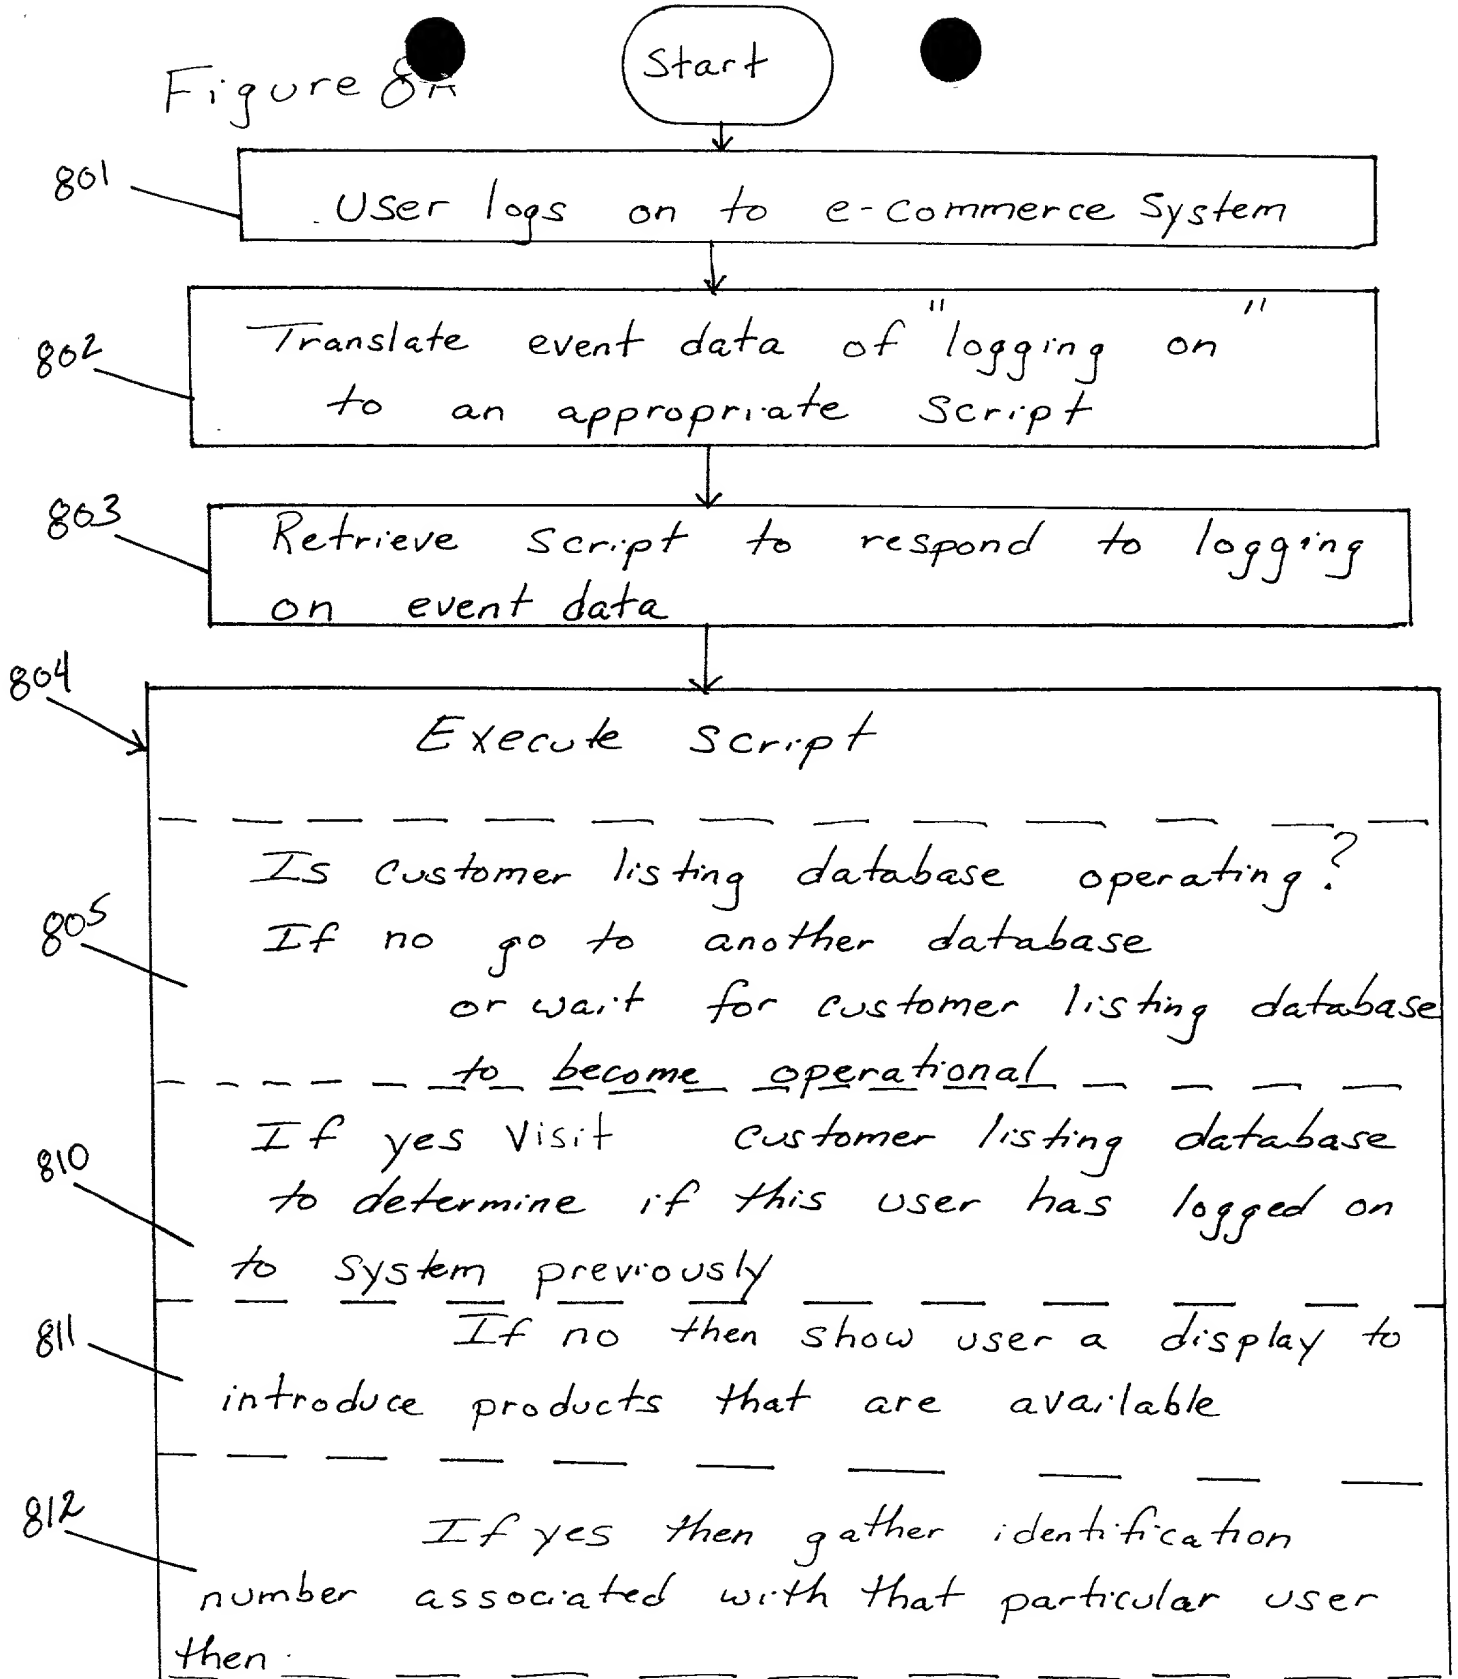 Figure 8A
Start
801
User logs on to e-commerce System
802
Translate event data of "logging on"
to an appropriate script
803
Retrieve script to respond to logging
on event data
804
Execute script
805
Is customer listing database operating?
If no go to another database
or wait for customer listing database
to become operational
810
If yes Visit customer listing database
to determine if this user has logged on
to system previously
811
If no then show user a display to
introduce products that are available
812
If yes then gather identification
number associated with that particular user
then